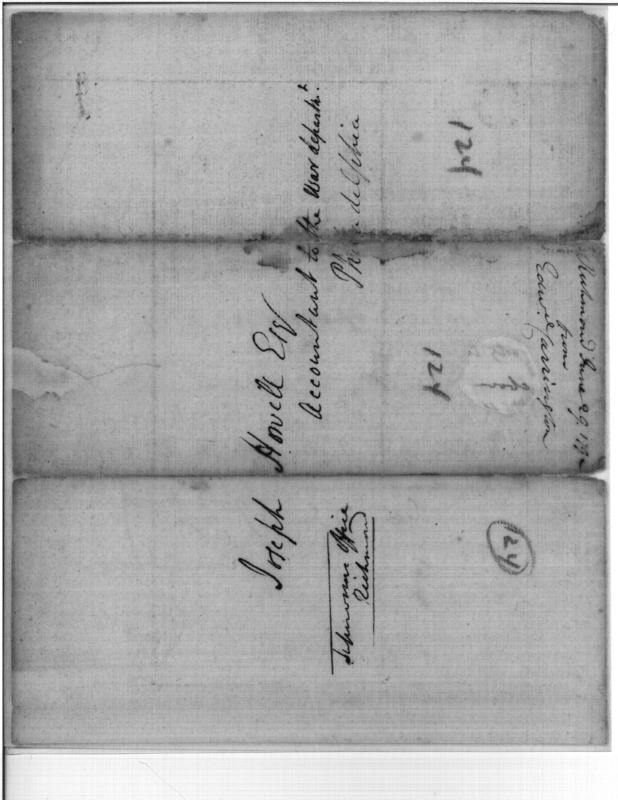 Joseph Howell Esqr
Accountant to the War departmt.
Philadelphia
Supervisors Office
Richmond
Richmond June 29 179
from
Edwd Carrington
124
124
124